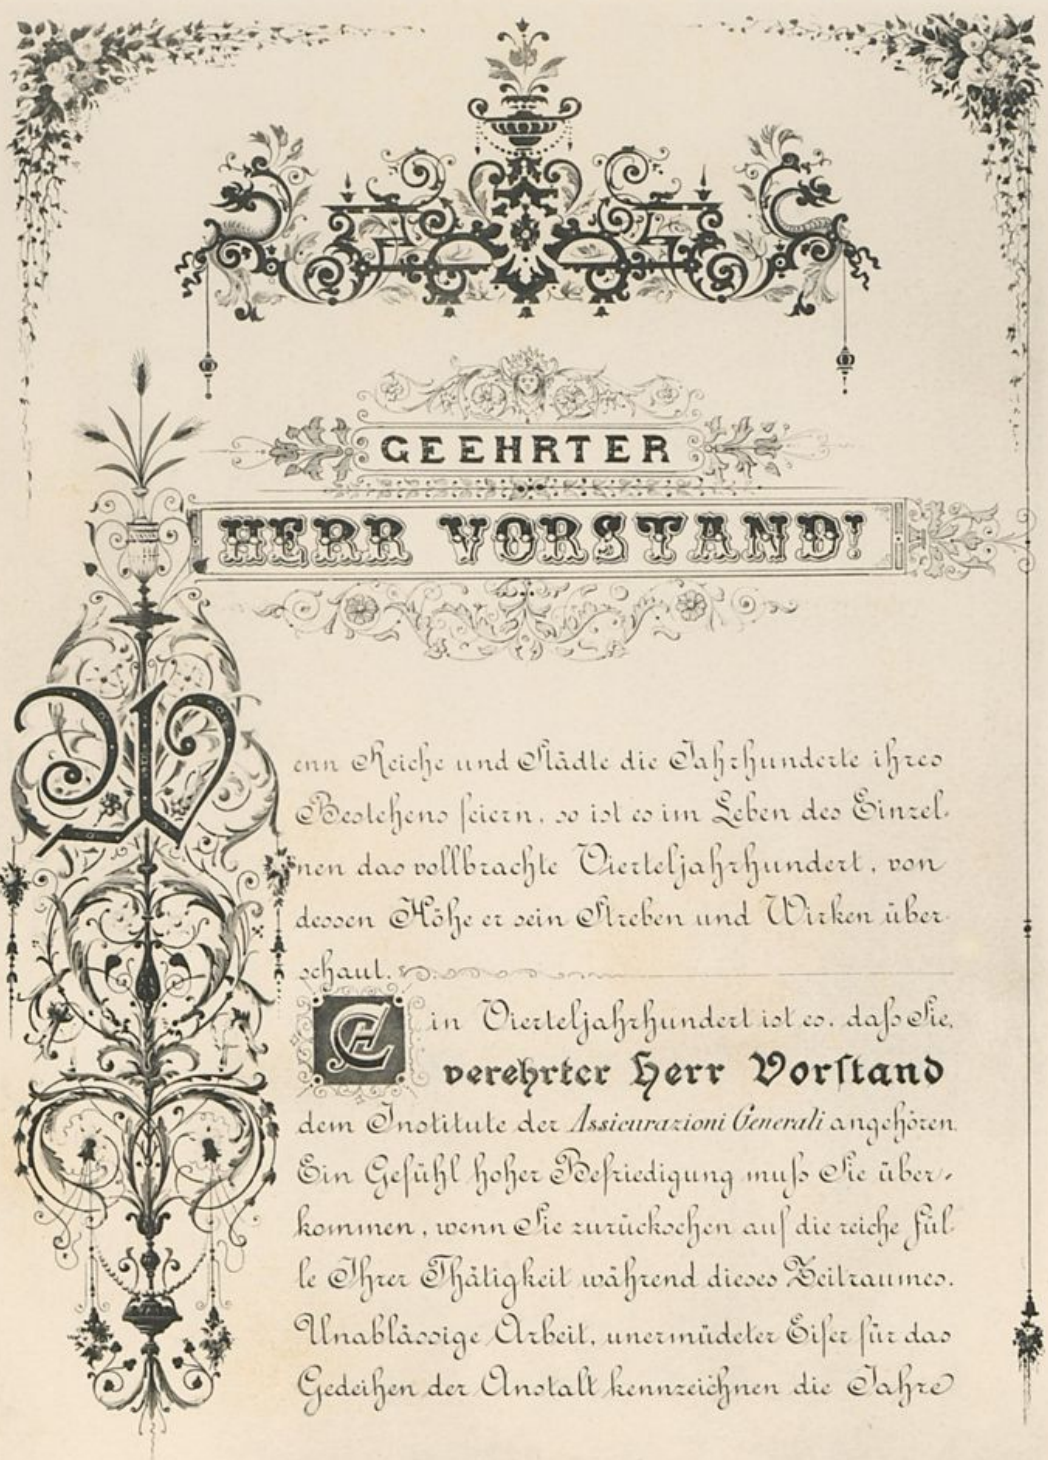 GEEHRTER
HERR VORSTAND!
Wenn Reiche und Städte die Jahrhunderte ihres
Bestehens feiern, so ist es im Leben des Einzel-
nen das vollbrachte Vierteljahrhundert, von
dessen Höhe er sein Streben und Wirken über-
schaut.
Ein Vierteljahrhundert ist es, daſs Sie,
verehrter Herr Vorſtand
dem Institute der Assicurazioni Generali angehören.
Ein Gefühl hoher Befriedigung muſs Sie über-
kommen, wenn Sie zurücksehen auf die reiche Fül-
le Ihrer Thätigkeit während dieses Zeitraumes.
Unablässige Arbeit, unermüdeter Eifer für das
Gedeihen der Anstalt kennzeichnen die Jahre